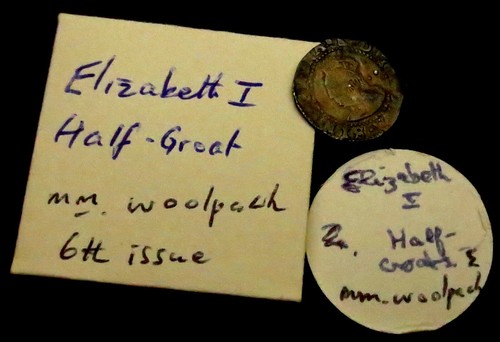 Elizabeth I
Half-Groat
mm. woolpack
6th issue
Elizabeth
I
Half-
mm. woolpack